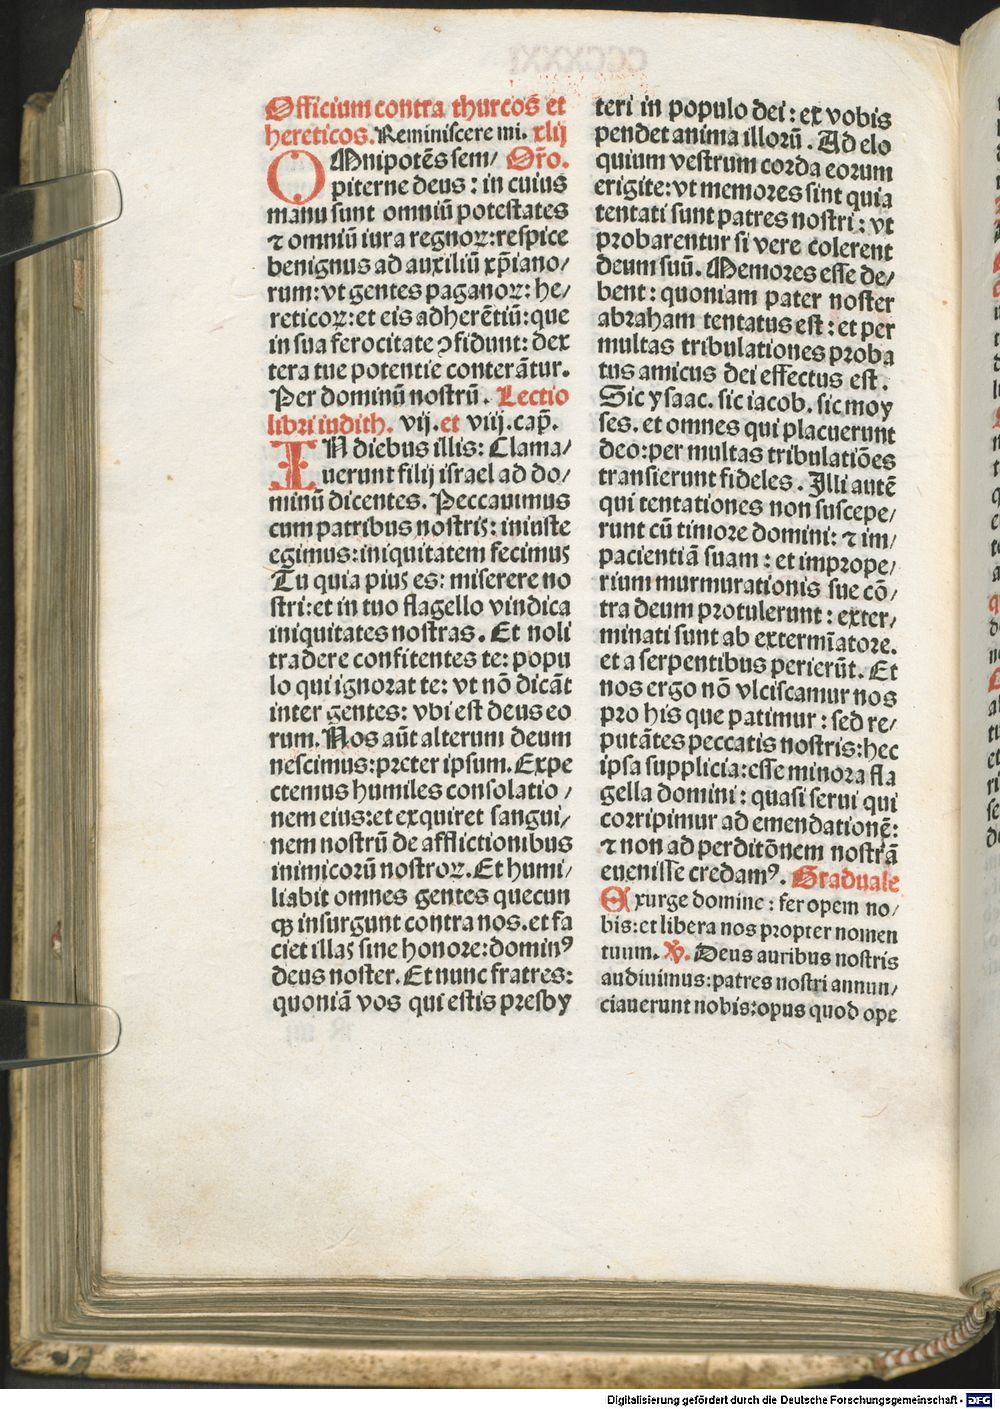 Officium contra thurcos et
hereticos. Reminiscere mi. xlij
OMnipotẽs sem/ Or̃o.
piterne deus: in cuius
manu sunt omniũ potestates
⁊ omniũ iura regnoꝝ: respice
benignus ad auxiliũ xp̃iano/
rum: vt gentes paganoꝝ: he/
reticoꝝ: et eis adherẽtiũ: que
in sua ferocitate ꝯfidunt: dex
tera tue potentie conterãtur.
Per dominũ nostrũ. Lectio
libri iudith. vij. et viij. cap̃.
IN diebus illis: Clama/
uerunt filij israel ad do/
minũ dicentes. Peccauimus
cum patribus nostris: iniuste
egimus: iniquitatem fecimus
Tu quia pius es: miserere no
stri: et in tuo flagello vindica
iniquitates nostras. Et noli
tradere confitentes te: popu
lo qui ignorat te: vt nõ dicãt
inter gentes: vbi est deus eo
rum. Nos aũt alterum deum
nescimus: preter ipsum. Expe
ctemus humiles consolatio/
nem eius: et exquiret sangui/
nem nostrũ de afflictionibus
inimicorũ nostroꝝ. Et humi/
liabit omnes gentes quecun
qꝫ insurgunt contra nos. et fa
ciet illas sine honore: dominꝰ
deus noster. Et nunc fratres:
quoniã vos qui estis presby
teri in populo dei: ex vobis
pendet anima illorũ. Ad elo
quium vestrum corda eorum
erigite: vt memores sint quia
tentati sunt patres nostri: vt
probarentur si vere colerent
deum suũ. Memores esse de/
bent: quoniam pater noster
abraham tentatus est: et per
multas tribulationes proba
tus amicus dei effectus est.
Sic ysaac. sic iacob. sic moy
ses. et omnes qui placuerunt
deo: per multas tribulatiões
transierunt fideles. Illi autẽ
qui tentationes non suscepe/
runt cũ timore domini: ⁊ im/
pacientiã suam: et imprope/
rium murmurationis sue cõ/
tra deum protulerunt: exter/
minati sunt ab extermĩatore.
et a serpentibus perierũt. Et
nos ergo nõ vlciscamur nos
pro his que patimur: sed re/
putãtes peccatis nostris: hec
ipsa supplicia: esse minora fla
gella domini: quasi serui qui
corripimur ad emendationẽ:
⁊ non ad perditõnem nostrã
euenisse credamꝰ. Graduale
Exurge domine: fer opem no/
bis: et libera nos propter nomen
tuum. ℣. Deus auribus nostris
audiuimus: patres nostri annun/
ciauerunt nobis: opus quod ope
Digitalisierung gefördert durch die Deutsche Forschungsgemeinschaft - DFG